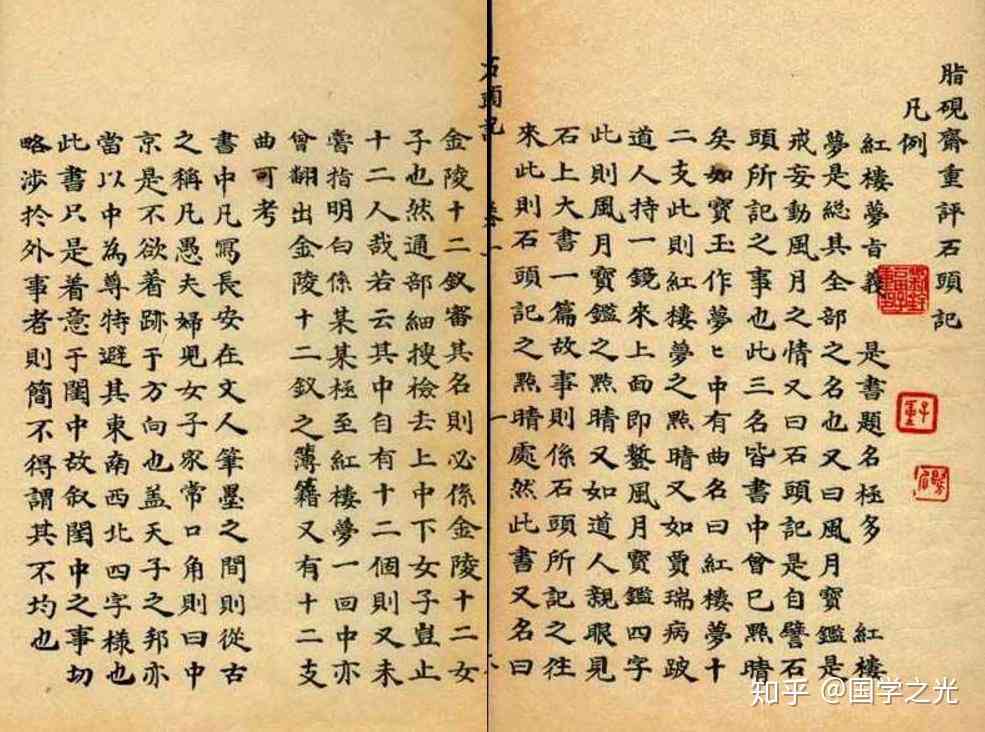 脂硯齋重評石頭記
凡例
紅樓夢旨義 是書題名極多 紅樓
夢是総其全部之名也又曰風月寶鑑是
戒妄動風月之情又曰石頭記是自譬石
頭所記之事也此三名皆書中曾已㸃晴
矣如寶玉作夢〻中有曲名曰紅樓夢十
二支此則紅樓夢之㸃晴又如賈瑞病跛
道人持一鏡來上面即鏨風月寳鑑四字
此則風月寶鑑之㸃晴又如道人親眼見
石上大書一篇故事則係石頭所記之徃
來此則石頭記之㸃晴處然此書又名曰
石頭記 卷一 一
金陵十二釵審其名則必係金陵十二女
子也然通部細搜檢去上中下女子豈止
十二人哉若云其中自有十二個則又未
嘗指明白係某某極至紅樓夢一回中亦
曾翻出金陵十二釵之簿籍又有十二支
曲可考
書中凡寫長安在文人筆墨之間則從古
之稱凡愚夫婦兒女子家常口角則曰中
京是不欲着跡于方向也盖天子之邦亦
當以中為尊特避其東南西北四字樣也
此書只是着意于閨中故叙閨中之事切
略涉於外事者則簡不得謂其不均也
知乎 @国学之光